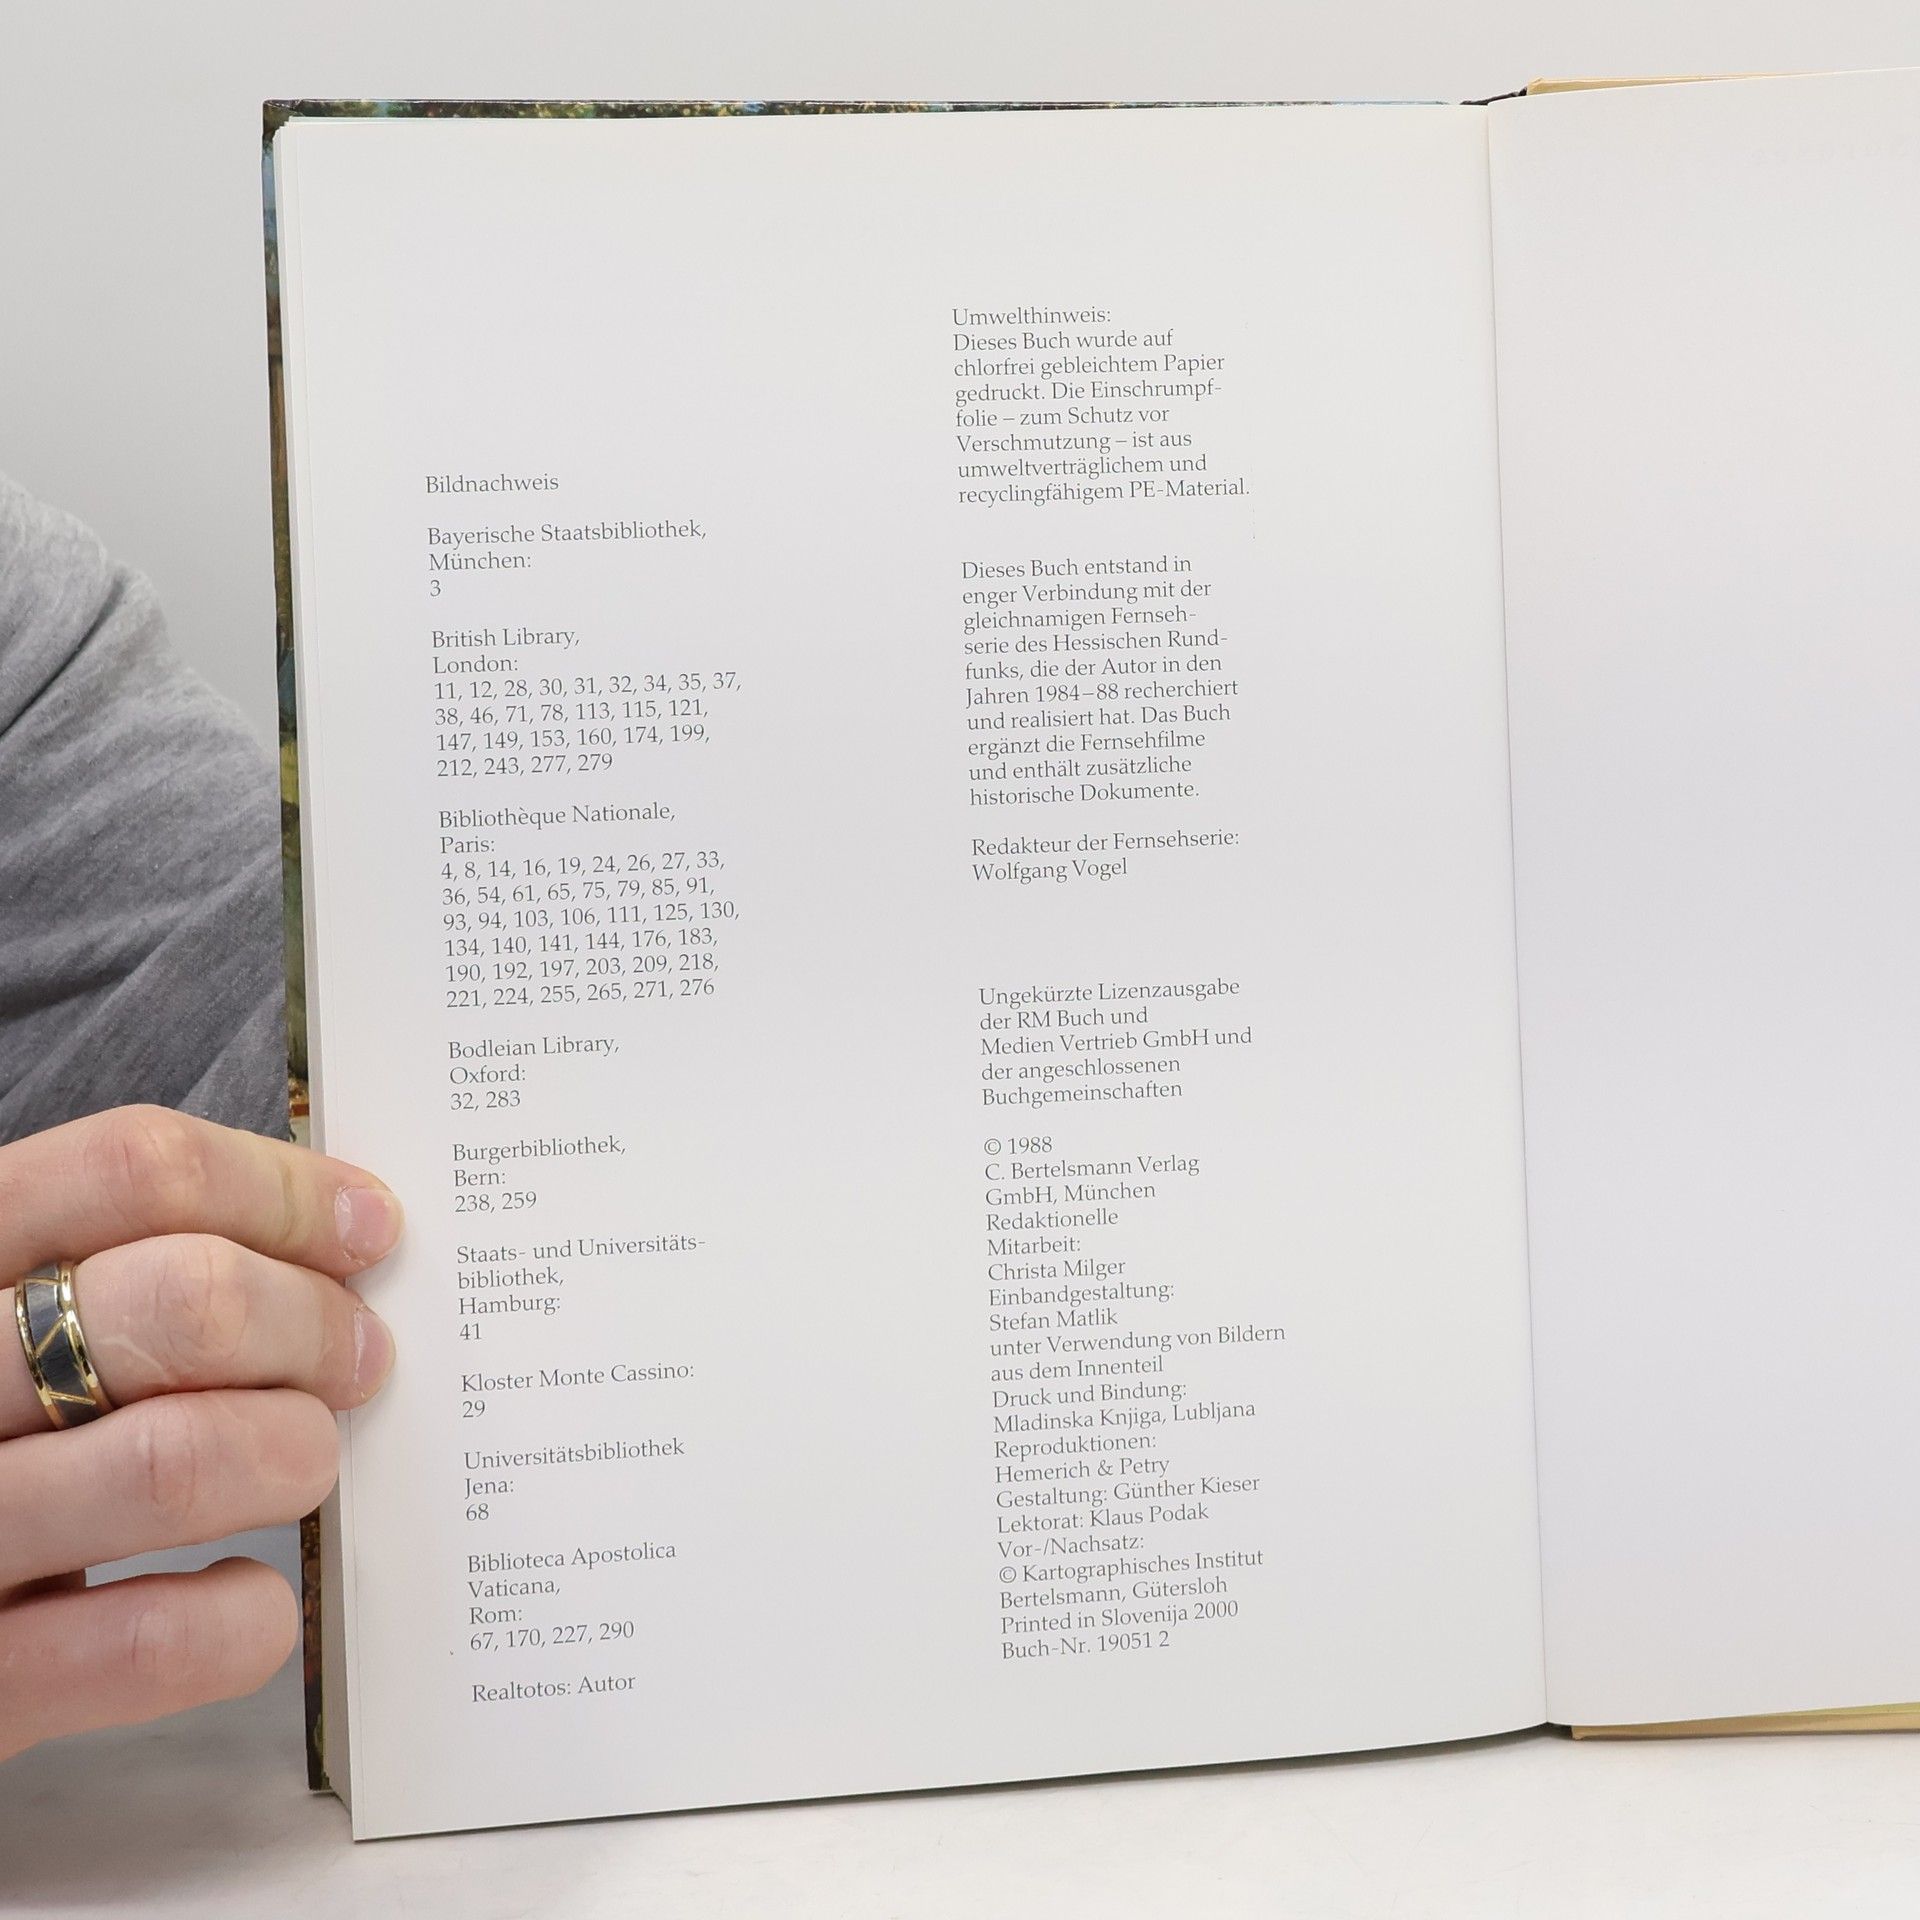 Bildnachweis
Bayerische Staatsbibliothek,
München:
3
British Library,
London:
11, 12, 28, 30, 31, 32, 34, 35, 37,
38, 46, 71, 78, 113, 115, 121,
147, 149, 153, 160, 174, 199,
212, 243, 277, 279
Bibliothèque Nationale,
Paris:
4, 8, 14, 16, 19, 24, 26, 27, 33,
36, 54, 61, 65, 75, 79, 85, 91,
93, 94, 103, 106, 111, 125, 130,
134, 140, 141, 144, 176, 183,
190, 192, 197, 203, 209, 218,
221, 224, 255, 265, 271, 276
Bodleian Library,
Oxford:
32, 283
Burgerbibliothek,
Bern:
238, 259
Staats- und Universitäts-
bibliothek,
Hamburg:
41
Kloster Monte Cassino:
29
Universitätsbibliothek
Jena:
68
Biblioteca Apostolica
Vaticana,
Rom:
67, 170, 227, 290
Realtotos: Autor
Umwelthinweis:
Dieses Buch wurde auf
chlorfrei gebleichtem Papier
gedruckt. Die Einschrumpf-
folie – zum Schutz vor
Verschmutzung – ist aus
umweltverträglichem und
recyclingfähigem PE-Material.
Dieses Buch entstand in
enger Verbindung mit der
gleichnamigen Fernseh-
serie des Hessischen Rund-
funks, die der Autor in den
Jahren 1984–88 recherchiert
und realisiert hat. Das Buch
ergänzt die Fernsehfilme
und enthält zusätzliche
historische Dokumente.
Redakteur der Fernsehserie:
Wolfgang Vogel
Ungekürzte Lizenzausgabe
der RM Buch und
Medien Vertrieb GmbH und
der angeschlossenen
Buchgemeinschaften
© 1988
C. Bertelsmann Verlag
GmbH, München
Redaktionelle
Mitarbeit:
Christa Milger
Einbandgestaltung:
Stefan Matlik
unter Verwendung von Bildern
aus dem Innenteil
Druck und Bindung:
Mladinska Knjiga, Lubljana
Reproduktionen:
Hemerich & Petry
Gestaltung: Günther Kieser
Lektorat: Klaus Podak
Vor-/Nachsatz:
© Kartographisches Institut
Bertelsmann, Gütersloh
Printed in Slovenija 2000
Buch-Nr. 19051 2